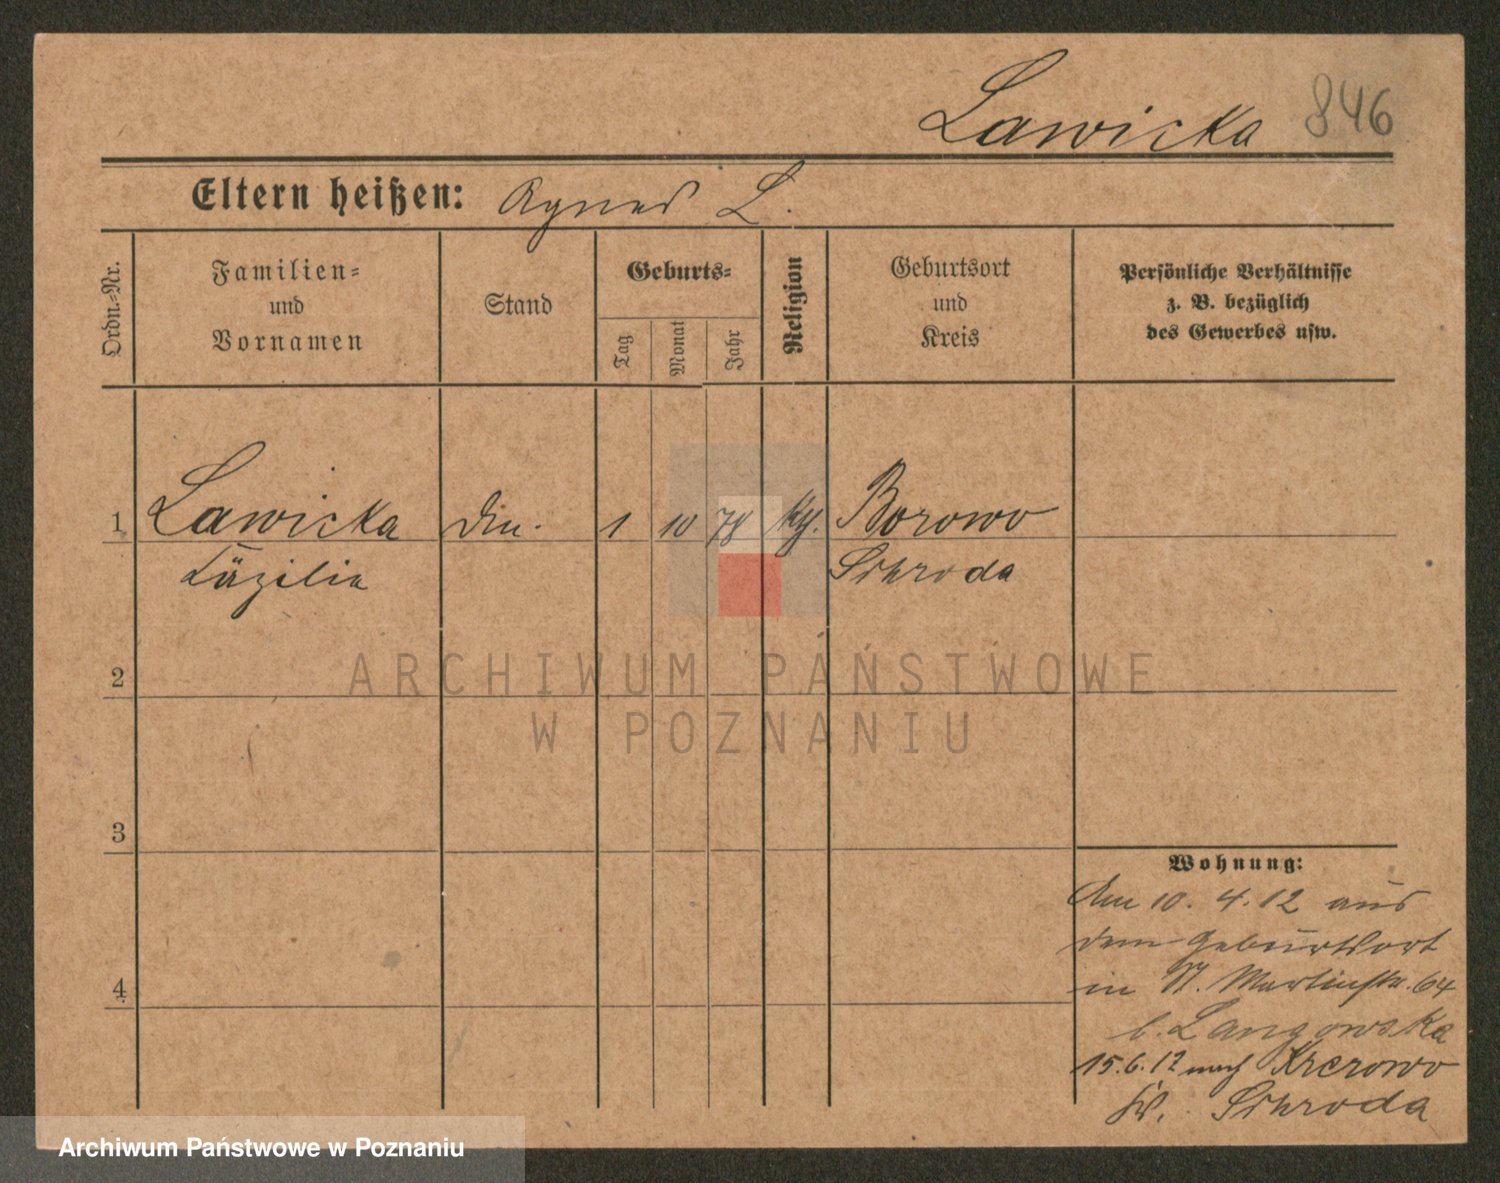 Lawicka 846
Eltern heißen: Agnes L.
Ordn.-Nr.
Familien-
und
Vornamen
Stand
Geburts-
Tag
Monat
Jahr
Religion
Geburtsort
und
Kreis
Persönliche Verhältnisse
z. B. bezüglich
des Gewerbes usw.
1 Lawicka 1 10 78 kth. Borowo
Cäzilia Schroda
2
3
4
Wohnung:
Am 10. 4. 12 aus
dem Geburtsort
in St. Martinstr. 64
b. Langowska
15.6.12 nach Krerowo
Kr. Schroda
ARCHIWUM PAŃSTWOWE
W POZNANIU
Archiwum Państwowe w Poznaniu